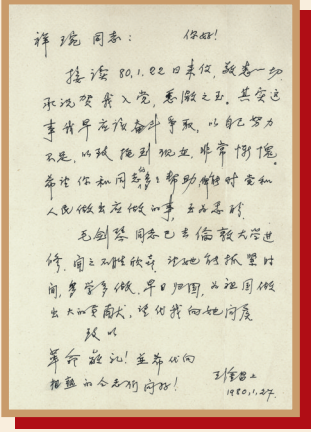 祥琬同志： 你好！
接读80.1.22日来信，敬悉一切
承祝贺我入党，甚激之至。其实这
事我早应该奋斗争取，以自己努力
不足，以致拖到现在，非常惭愧。
希望你和同志们多多帮助，能对党和
人民做出应做的事，
毛剑琴同志已去倫敦大学进
修，闻之不胜欣喜，让她能抓紧时
间，多学多做，早日归国，为祖国做
出大的贡献，请代我向她问候
致以
革命敬礼！并希代向
的同志们问好！
1980.1.27.